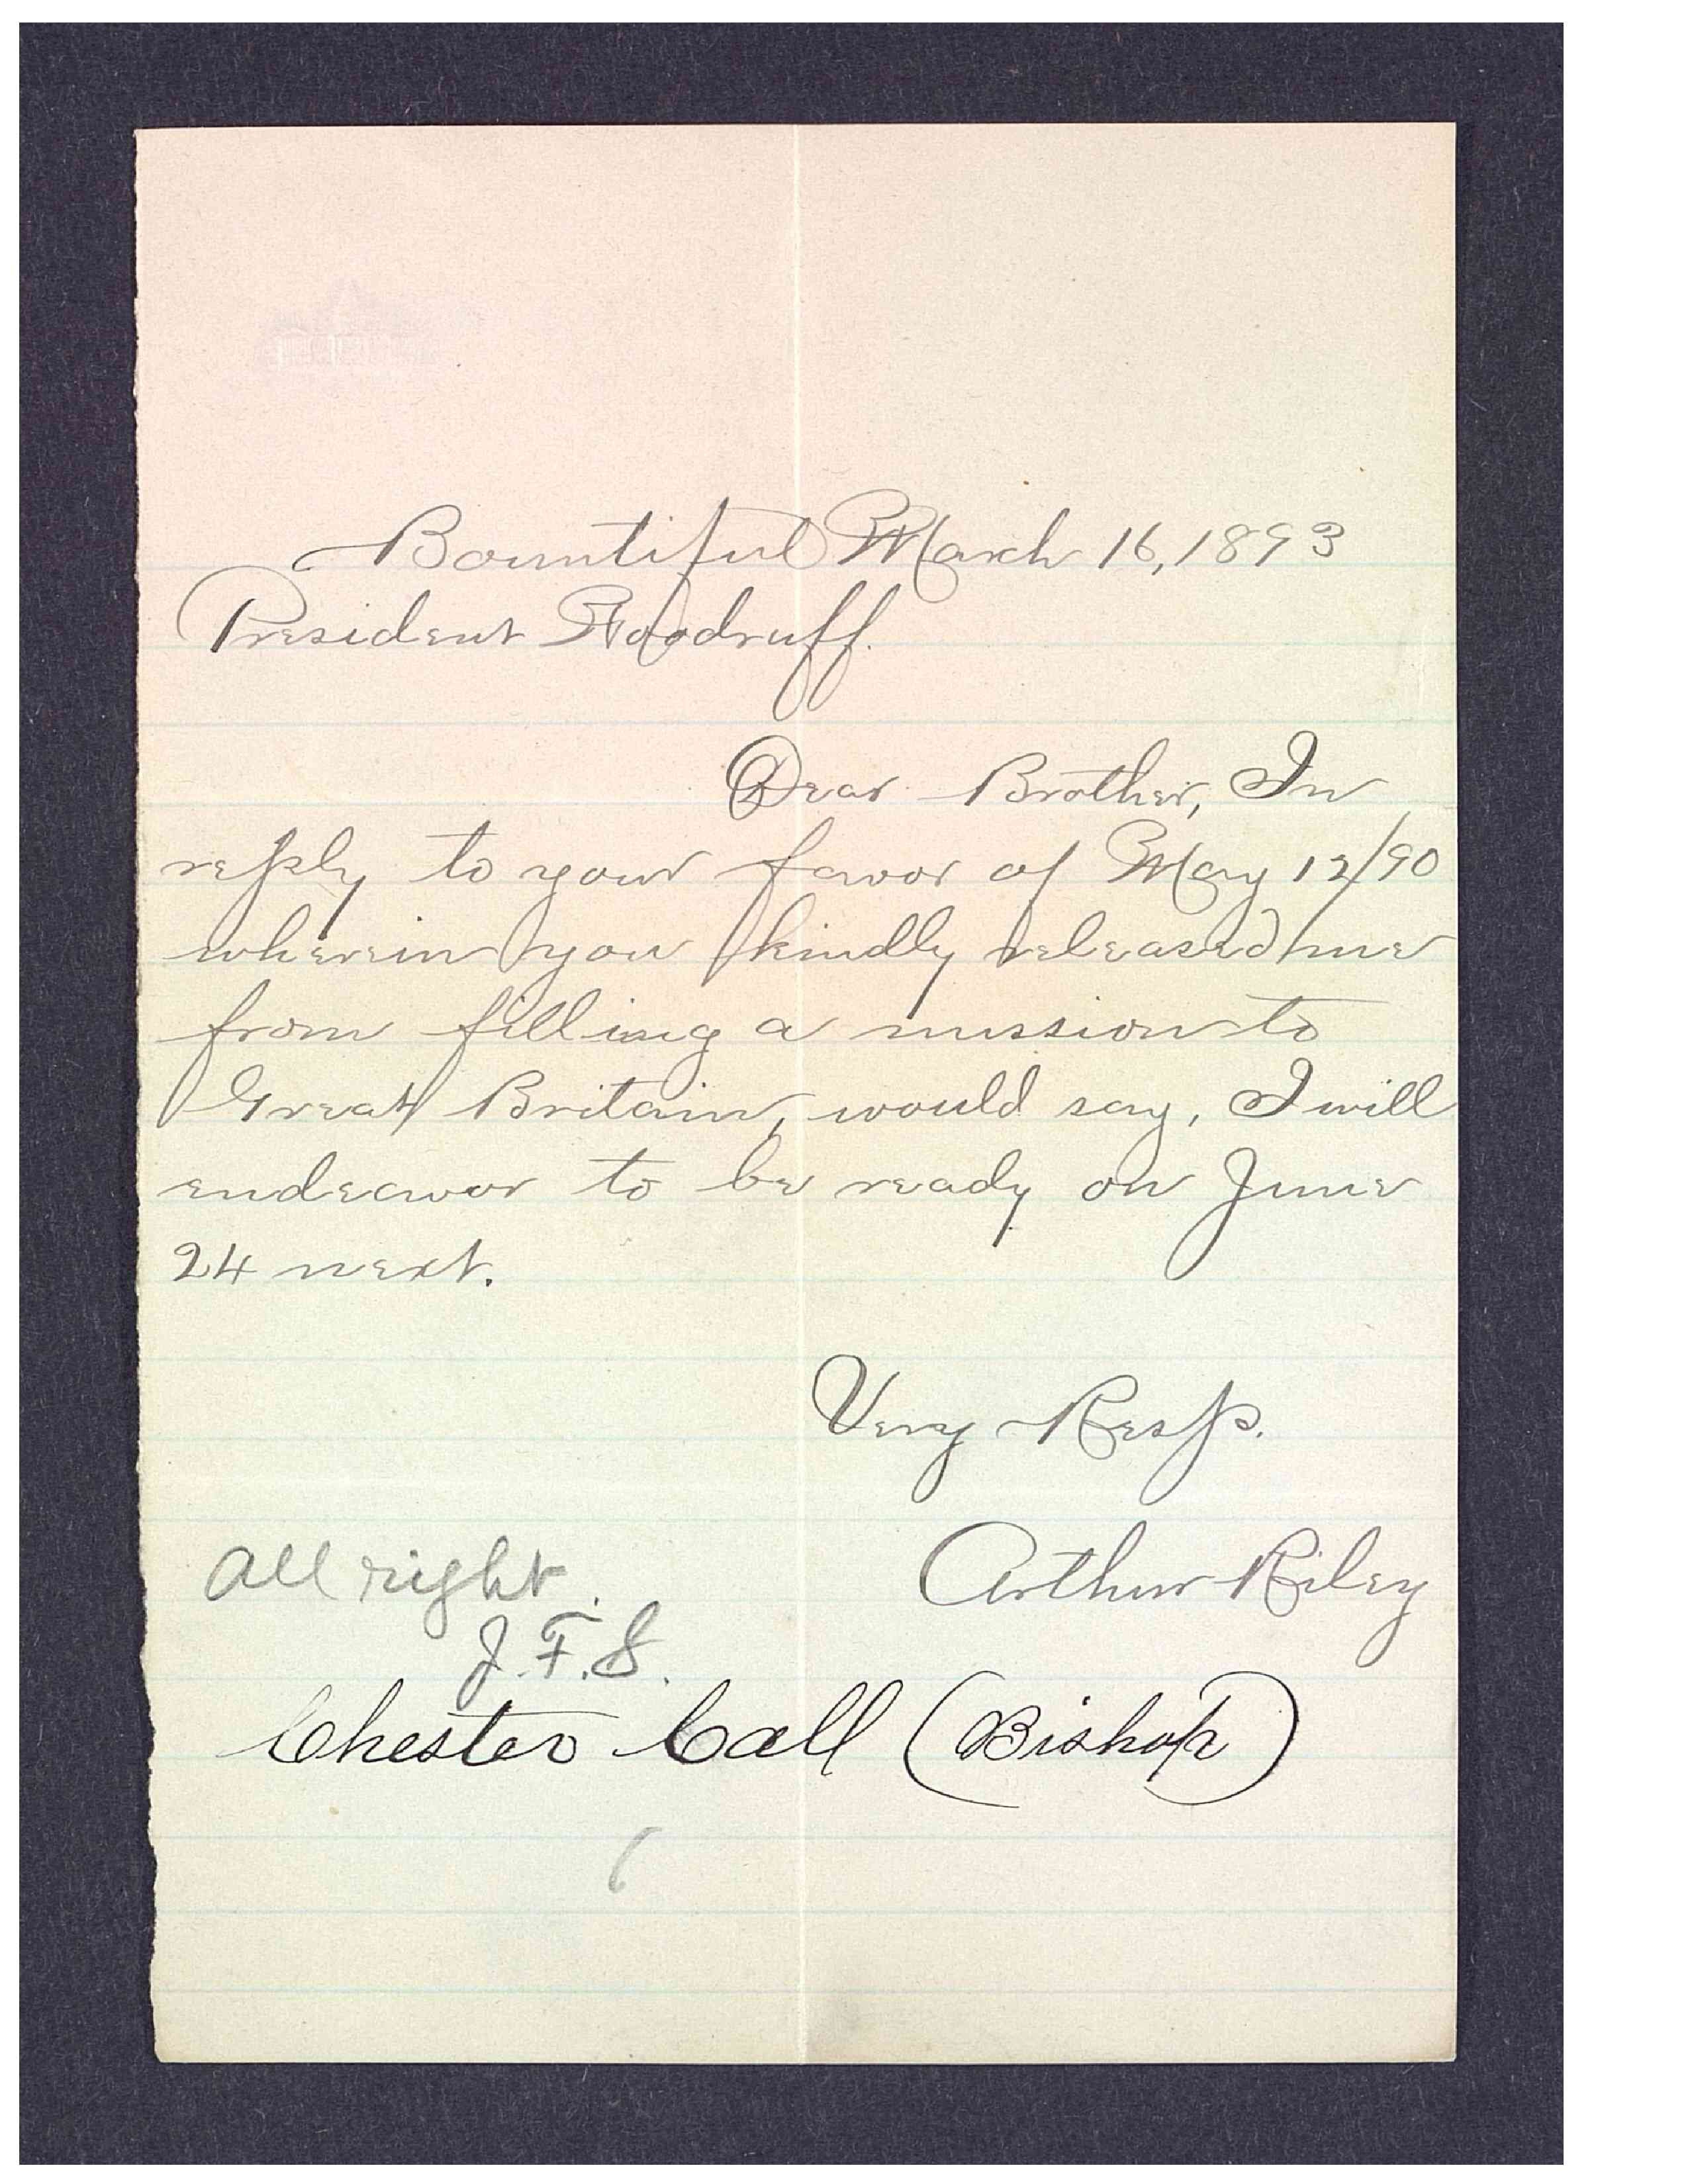 Bountiful March 16, 1893
President Woodruff.
Dear Brother, In
reply to your favor of May 12/90
wherein you kindly released me
from filling a mission to
Great Britain, would say, I will
endeavor to be ready on June
24 next.
Very Resp.
Arthur Riley
All right.
J.F.S.
Chester Call (Bishop)